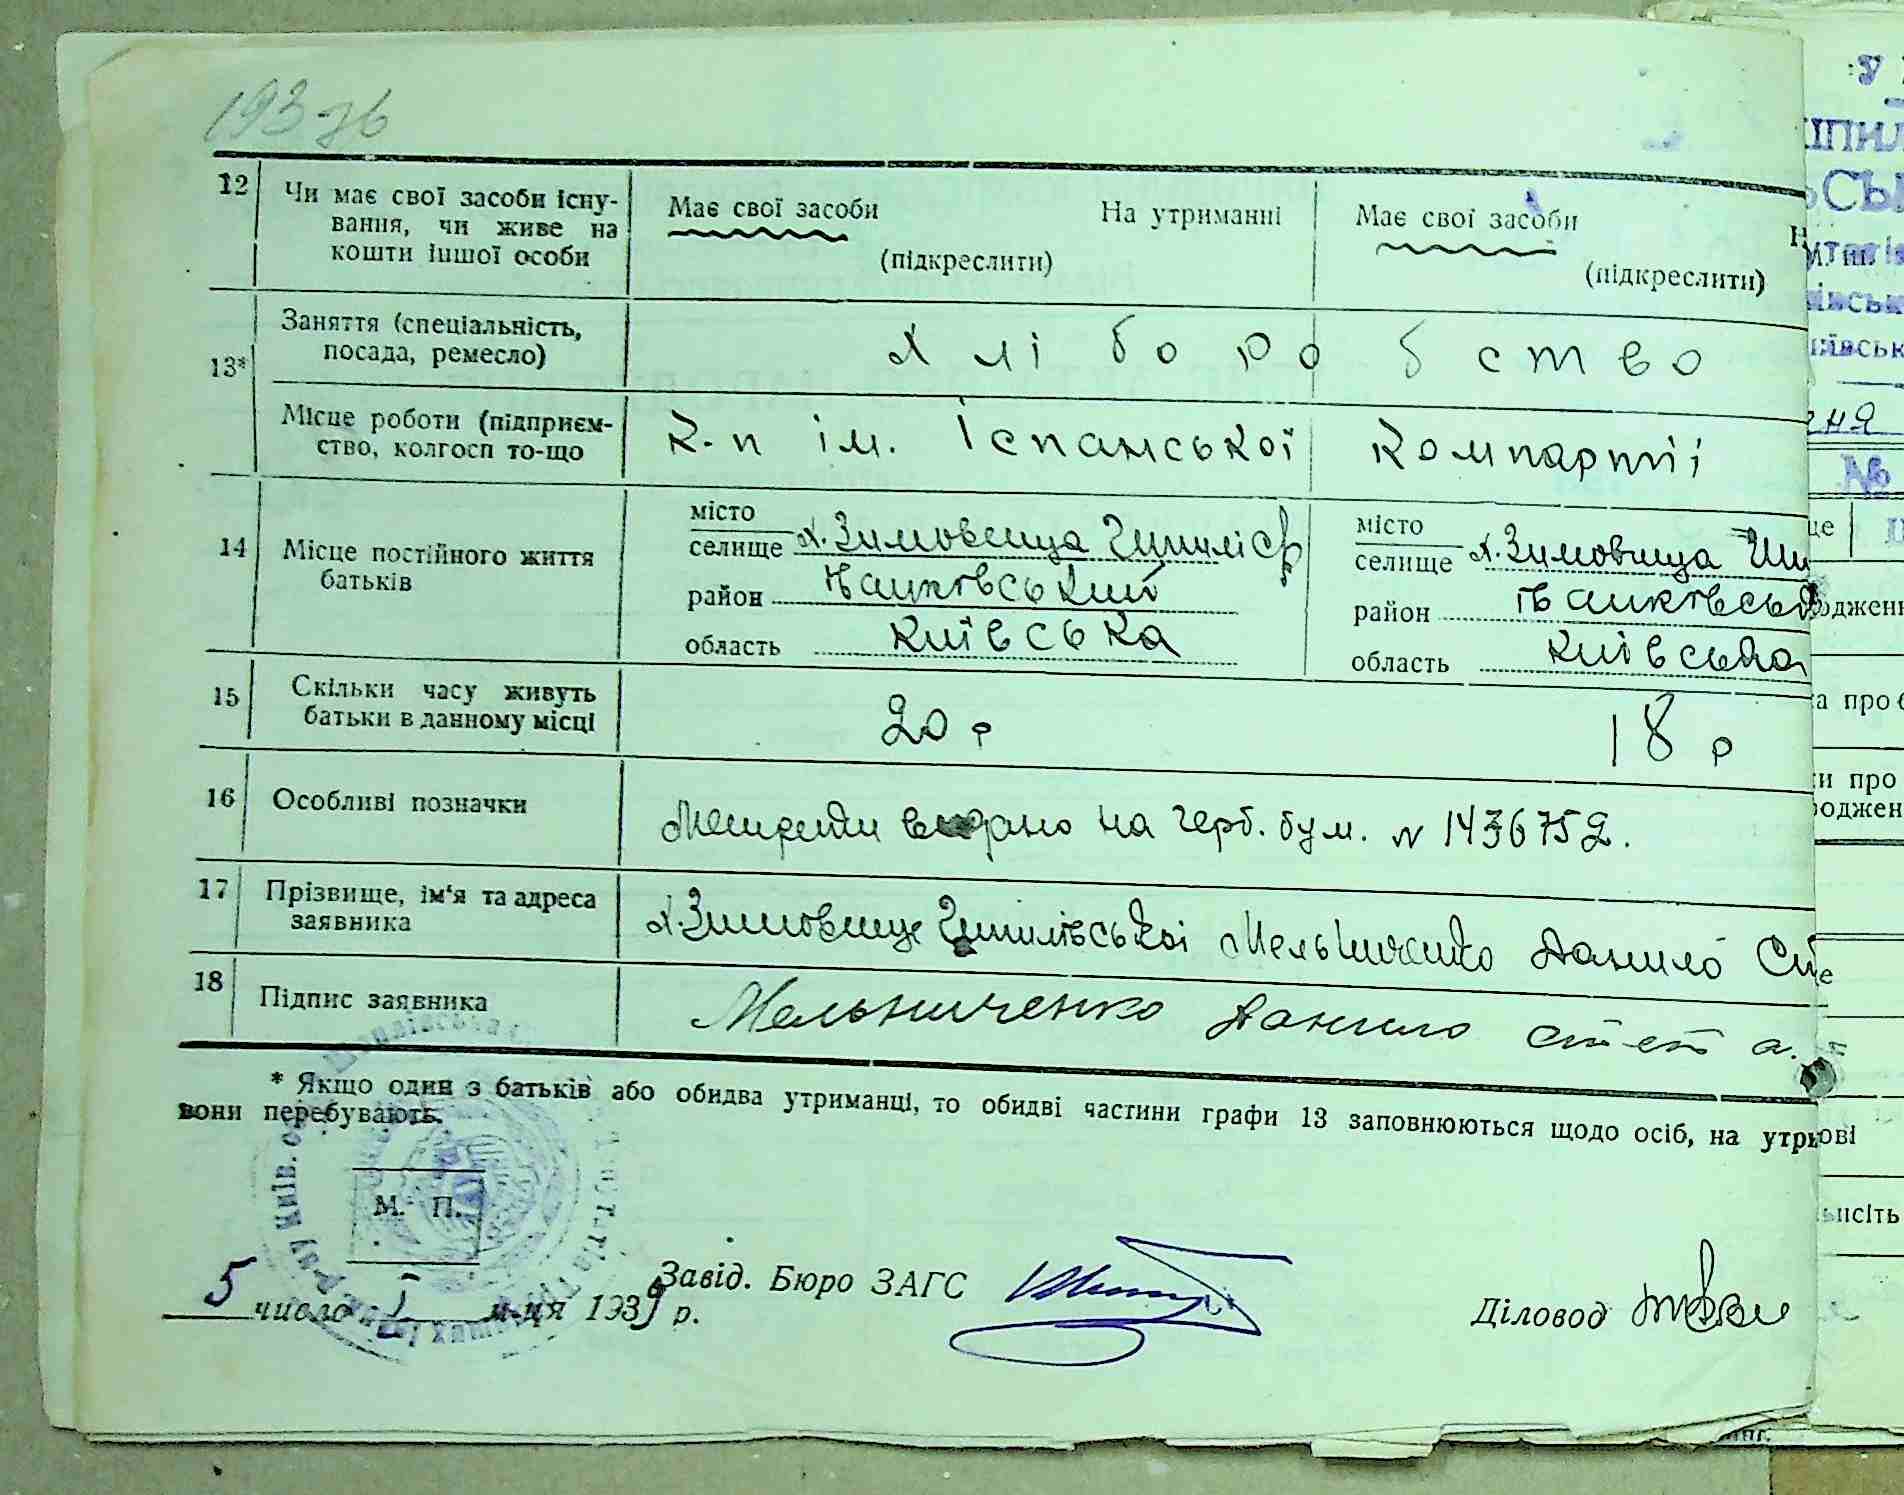 193 зв
12 Чи має свої засоби існу- Має свої засоби На утриманні Має свої засоби
вання, чи живе на
кошти іншої особи (підкреслити) (підкреслити)
13* Заняття (спеціальність,
посада, ремесло) хліборобство
Місце роботи (підприєм-
ство, колгосп то-що К-п ім. Іспанської Компартії
14 Місце постійного життя
батьків
місто
селище х. Зимовища
район
область київська
місто
селище х. Зимовища
район
область київська
15 Скільки часу живуть
батьки в данному місці 20 р 18 р
16 Особливі позначки на герб. бум. N 1436752.
17 Прізвище, ім'я та адреса
заявника х. Зимовище Мельниченко Данило Сте
18 Підпис заявника Мельниченко Данило Степ а.
* Якщо один з батьків або обидва утриманці, то обидві частини графи 13 заповнюються щодо осіб, на утри
вони перебувають.
М. П.
Завід. Бюро ЗАГС
5 число I м-ця 1939 р.
Діловод